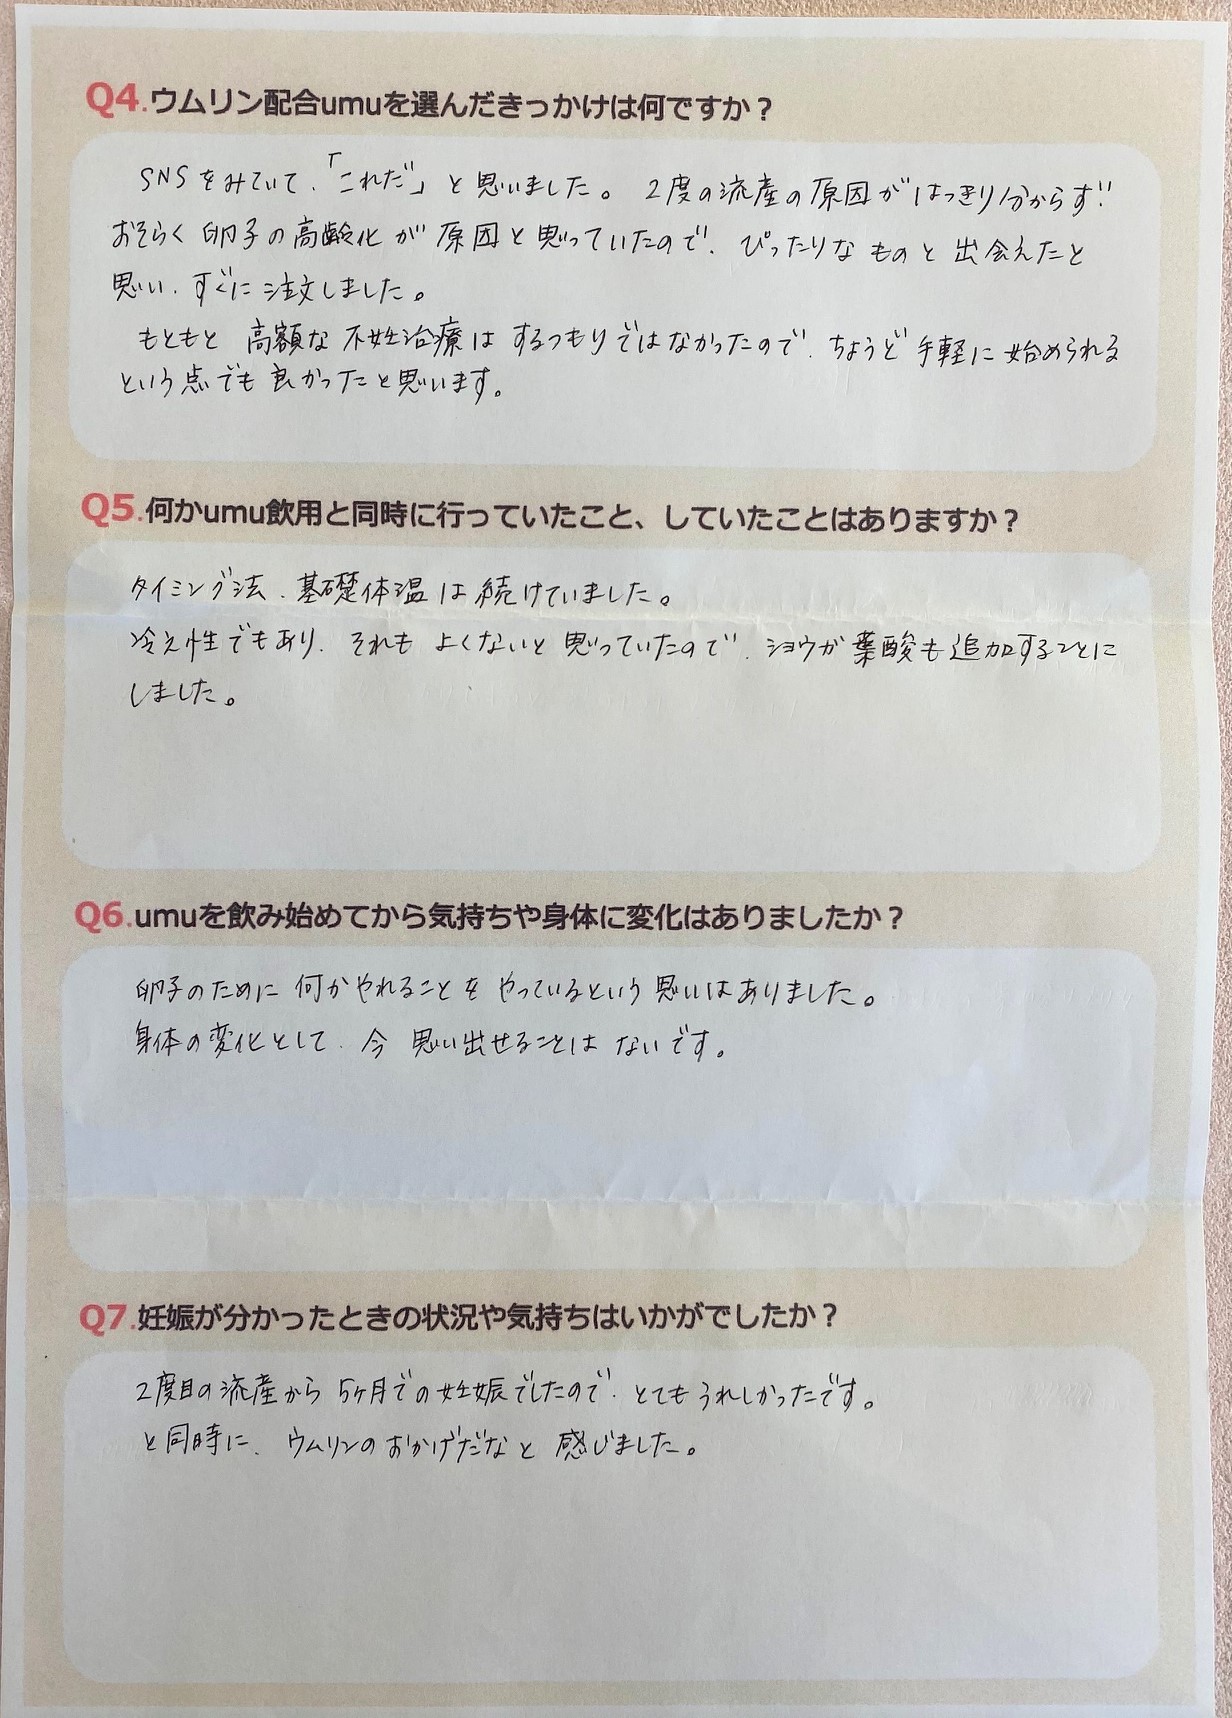 Q4.ウムリン配合umuを選んだきっかけは何ですか？
SNSをみていて、「これだ」と思いました。2度の流産の原因がはっきり分からず、
おそらく卵子の高齢化が原因と思っていたので、ぴったりなものと出会えたと
思い、すぐに注文しました。
もともと高額な不妊治療はするつもりではなかったので、ちょうど手軽に始められる
という点でも良かったと思います。
Q5.何かumu飲用と同時に行っていたこと、していたことはありますか？
タイミング法、基礎体温は続けていました。
冷え性でもあり、それもよくないと思っていたので、ショウガ葉酸も追加することに
しました。
Q6.umuを飲み始めてから気持ちや身体に変化はありましたか？
卵子のために何かやれることをやっているという思いはありました。
身体の変化として、今思い出せることはないです。
Q7.妊娠が分かったときの状況や気持ちはいかがでしたか？
2度目の流産から5ヶ月での妊娠でしたので、とてもうれしかったです。
と同時に、ウムリンのおかげだなと感じました。